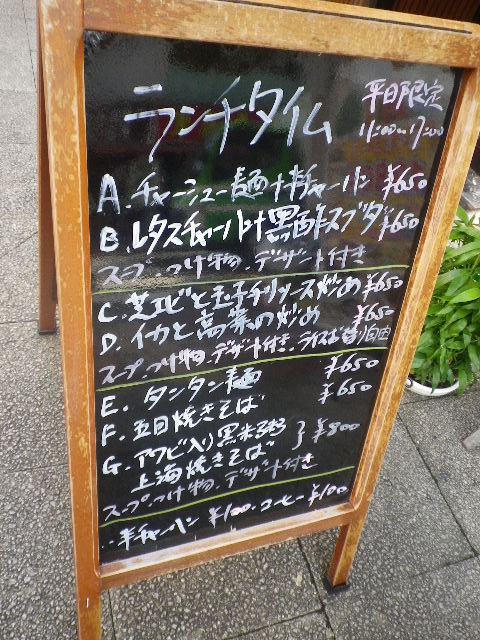 ランチタイム
平日限定
11:00〜17:00
A.チャーシュー麺+半チャーハン ¥650
B.レタスチャーハン+黒酢スブタ ¥650
スープ.つけ物.デザート付き
C.芝エビと玉子チリソース炒め ¥650
D.イカと高菜の炒め ¥650
スープ.つけ物.デザート付き.ライスお替り自由
E.タンタン麺 ¥650
F.五目焼きそば ¥650
G.アワビ入り黒米粥 } ¥800
上海焼きそば
スープ.つけ物.デザート付き
.半チャーハン ¥100.コーヒー ¥100